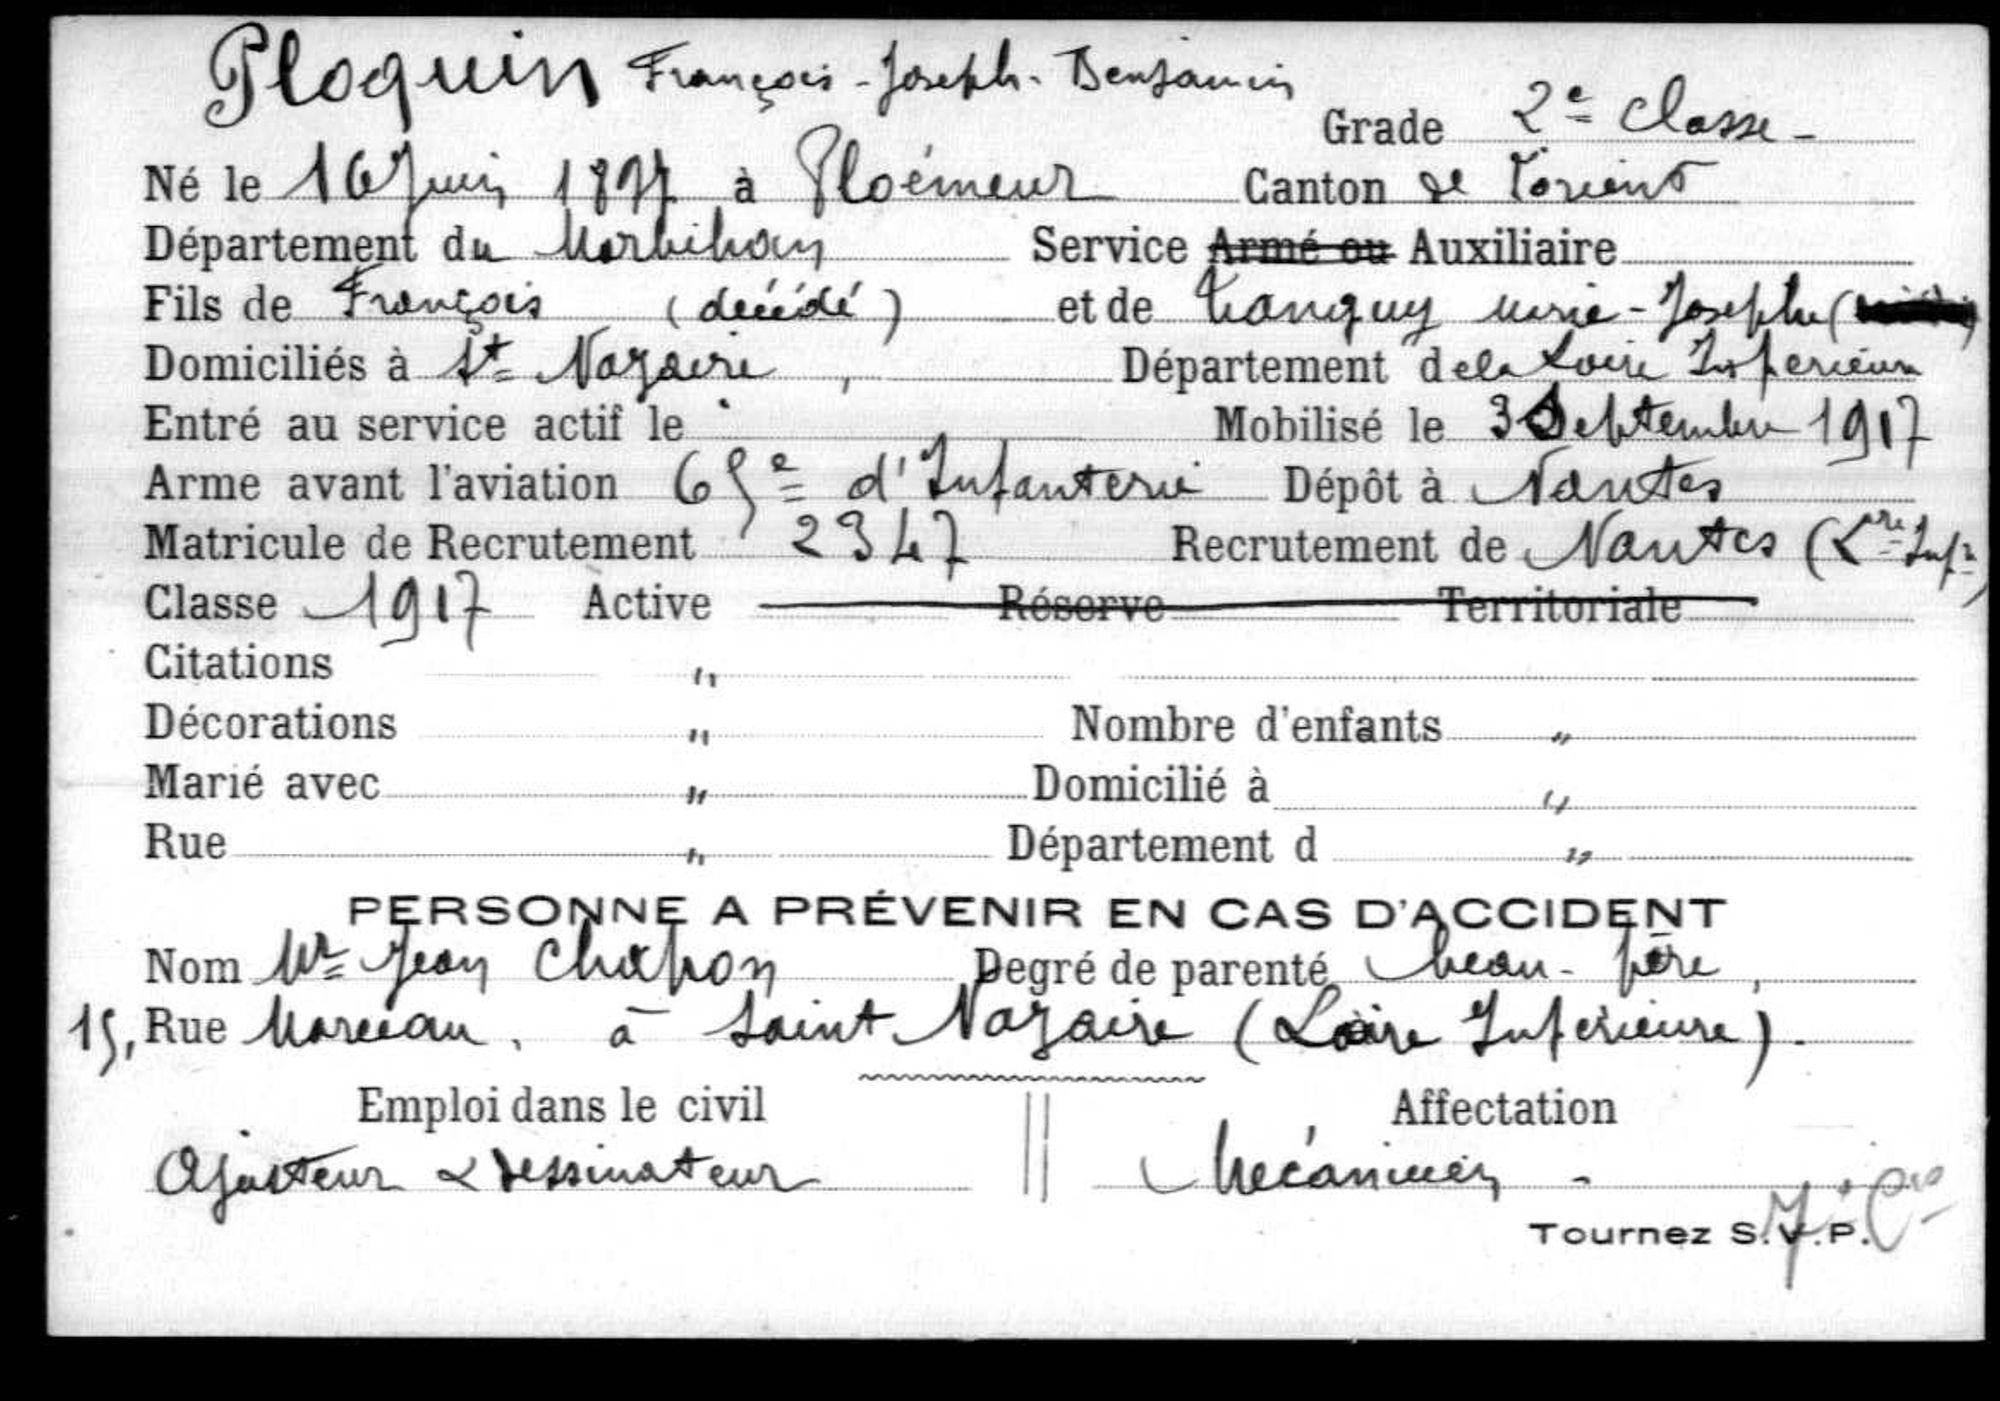 Ploquin François-Joseph-Benjamin
Grade 2e classe -
Né le 16 Juin 1897 à Ploëmeur Canton de Lorient
Département du Morbihan Service Armé ou Auxiliaire
Fils de François (décédé) et de Tanguy Marie-Josèphe (
Domiciliés à St Nazaire, Département de la Loire Inférieure
Entré au service actif le Mobilisé le 3 Septembre 1917
Arme avant l'aviation 65e d'Infanterie Dépôt à Nantes
Matricule de Recrutement 2347 Recrutement de Nantes (Lre Infre)
Classe 1917 Active Réserve Territoriale
Citations "
Décorations " Nombre d'enfants "
Marié avec " Domicilié à "
Rue " Département d "
PERSONNE A PRÉVENIR EN CAS D'ACCIDENT
Nom Mr Jean Chapon Degré de parenté beau-père,
15, Rue Marceau, à Saint Nazaire (Loire Inférieure).
Emploi dans le civil Affectation
Ajusteur & dessinateur Mécanicien -
Tournez S.V.P.